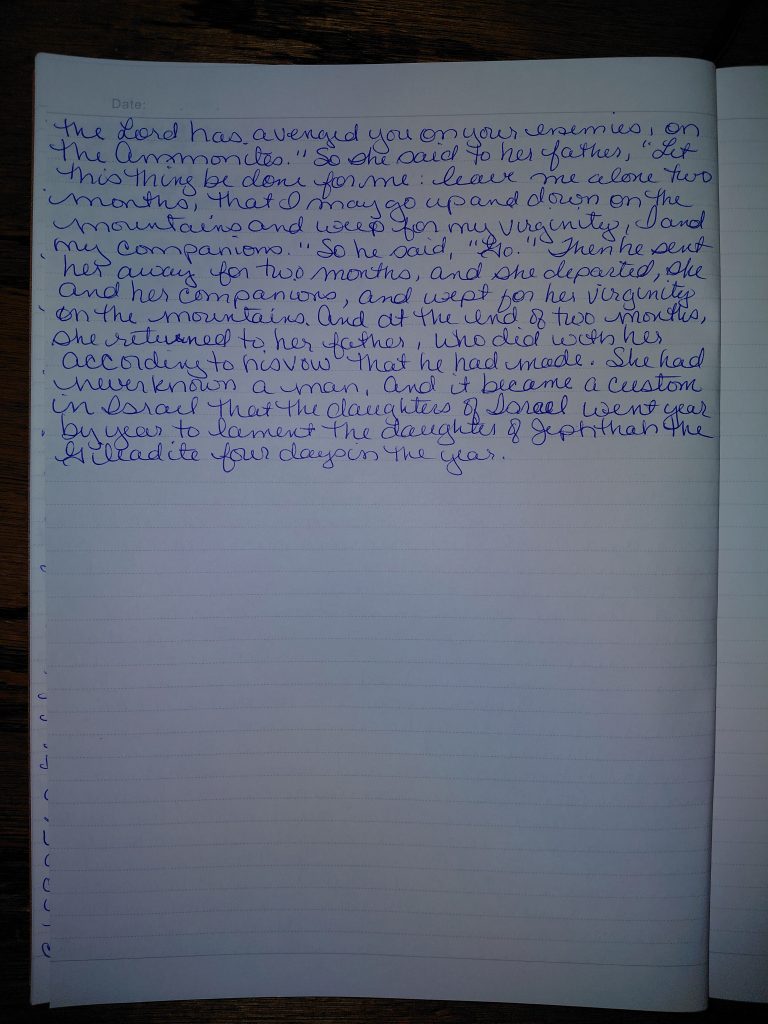 Date:
the Lord has avenged you on your enemies, on
the Ammonites." So she said to her father, "Let
this thing be done for me: leave me alone two
months, that I may go up and down on the
mountains and weep for my virginity, I and
my companions." So he said, "Go." Then he sent
her away for two months, and she departed, she
and her companions, and wept for her virginity
on the mountains. And at the end of two months,
she returned to her father, who did with her
according to his vow that he had made. She had
never known a man, and it became a custom
in Israel that the daughters of Israel went year
by year to lament the daughter of Jephthah the
Gileadite four days in the year.